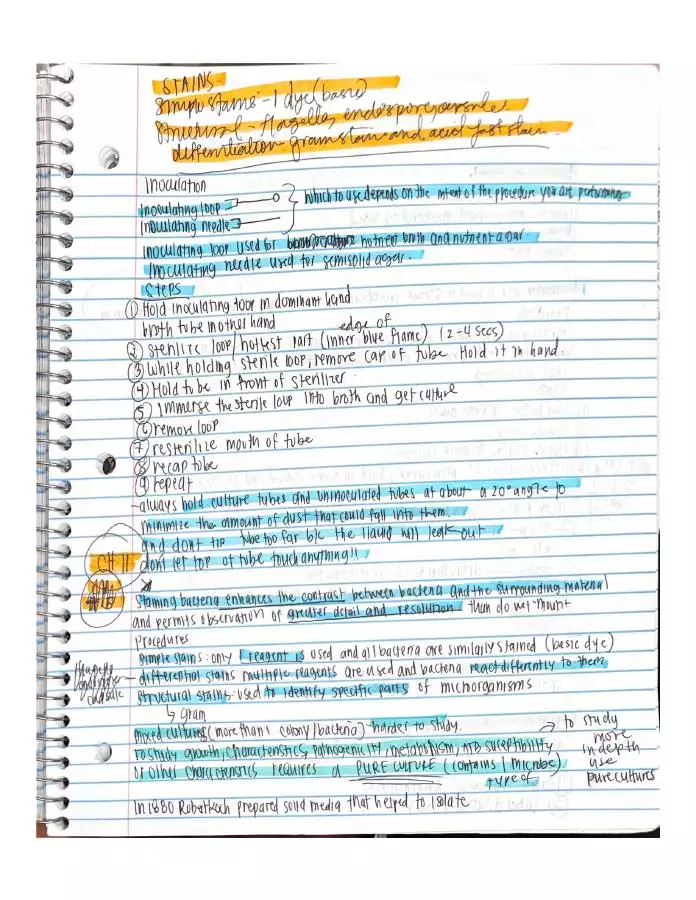 STAINS-
Simple stains - 1 dye (basic)
Structural - flagella, endospore, capsule
differentiation - gram stain and acid fast stain
Inoculation
Inoculating loop
Inoculating needle
Which to use depends on the intent of the procedure you are performing
Inoculating loop used for nutrient broth and nutrient agar.
Inoculating needle used for semisolid agar.
Steps
① Hold inoculating loop in dominant hand
broth tube in other hand
edge of
② sterilize loop/hottest part (inner blue flame) (2-4 secs)
③ While holding sterile loop, remove cap of tube Hold it in hand
④ Hold tube in front of sterilizer.
⑤ Immerse the sterile loop into broth and get culture
⑥ remove loop
⑦ resterilize mouth of tube
⑧ recap tube
⑨ repeat
-always hold culture tubes and uninoculated tubes at about a 20° angle to
minimize the amount of dust that could fall into them.
and dont tip tube too far b/c the liquid will leak out
CH 11
dont let top of tube touch anything!!
Staining bacteria enhances the contrast between bacteria and the surrounding material
and permits observation of greater detail and resolution than do wet mount
Procedures
Simple stains: only 1 reagent is used and all bacteria are similarly stained (basic dye)
differential stains multiple reagents are used and bacteria react differently to them
structural stains: used to identify specific parts of microorganisms
capsule
↳ Gram
mixed cultures (more than 1 colony/bacteria) harder to study.
to study growth, characteristics, pathogenicity, metabolism, ATB suceptibility
or other characteristics requires a PURE CULTURE (contains 1 microbe)
type of
→ to study
more
in depth
use
pure cultures
In 1880 Robert Koch prepared solid media that helped to isolate